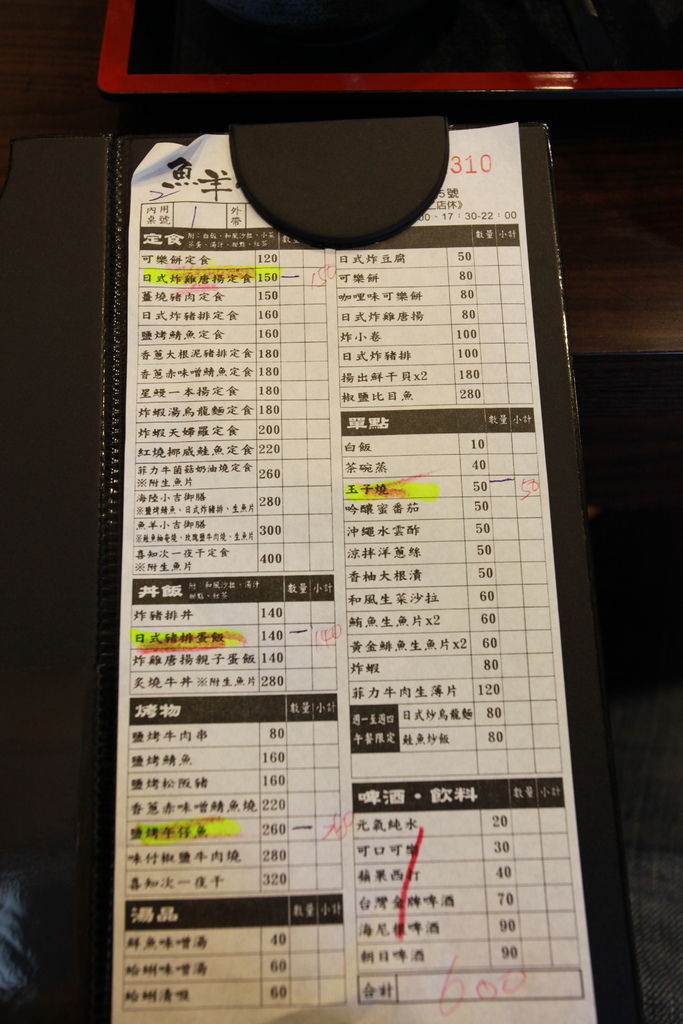 魚羊
310
5號
店休》
00、17：30-22：00
2
內用
桌號
1
外
帶
定食 附：白飯、和風沙拉、小菜
茶壺、湯汁、甜點、紅茶
數量
可樂餅定食 120
日式炸雞唐揚定食 150 一 150
薑燒豬肉定食 150
日式炸豬排定食 160
鹽烤鯖魚定食 160
香蔥大根泥豬排定食 180
香蔥赤味噌鯖魚定食 180
星鰻一本揚定食 180
炸蝦湯烏龍麵定食 180
炸蝦天婦羅定食 200
紅燒挪威鮭魚定食 220
菲力牛菌菇奶油燒定食
※附生魚片 260
海陸小吉御膳
※鹽烤鯖魚、日式炸豬排、生魚片 280
魚羊小吉御膳 300
喜知次一夜干定食
※附生魚片 400
丼飯 附：和風沙拉、湯汁
甜點、紅茶
數量 小計
炸豬排丼 140
日式豬排蛋飯 140 一 140
炸雞唐揚親子蛋飯 140
炙燒牛丼 ※附生魚片 280
烤物 數量 小計
鹽烤牛肉串 80
鹽烤鯖魚 160
鹽烤松阪豬 160
香蔥赤味噌鯖魚燒 220
鹽烤午仔魚 260 一 260
味付椒鹽牛肉燒 280
喜知次一夜干 320
湯品 數量 小計
鮮魚味噌湯 40
蛤蜊味噌湯 60
蛤蜊清湯 60
數量 小計
日式炸豆腐 50
可樂餅 80
咖哩味可樂餅 80
日式炸雞唐揚 80
炸小卷 100
日式炸豬排 100
揚出鮮干貝x2 180
椒鹽比目魚 280
單點 數量 小計
白飯 10
茶碗蒸 40
玉子燒 50 一 50
吟釀蜜番茄 50
沖繩水雲酢 50
涼拌洋蔥絲 50
香柚大根漬 50
和風生菜沙拉 60
鮪魚生魚片x2 60
黃金鯡魚生魚片x2 60
炸蝦 80
菲力牛肉生薄片 120
週一至週四
午餐限定
日式炒烏龍麵 80
鮭魚炒飯 80
啤酒・飲料 數量 小計
元氣純水 20
可口可樂 30
蘋果西打 40
台灣金牌啤酒 70
海尼根啤酒 90
朝日啤酒 90
合計 600